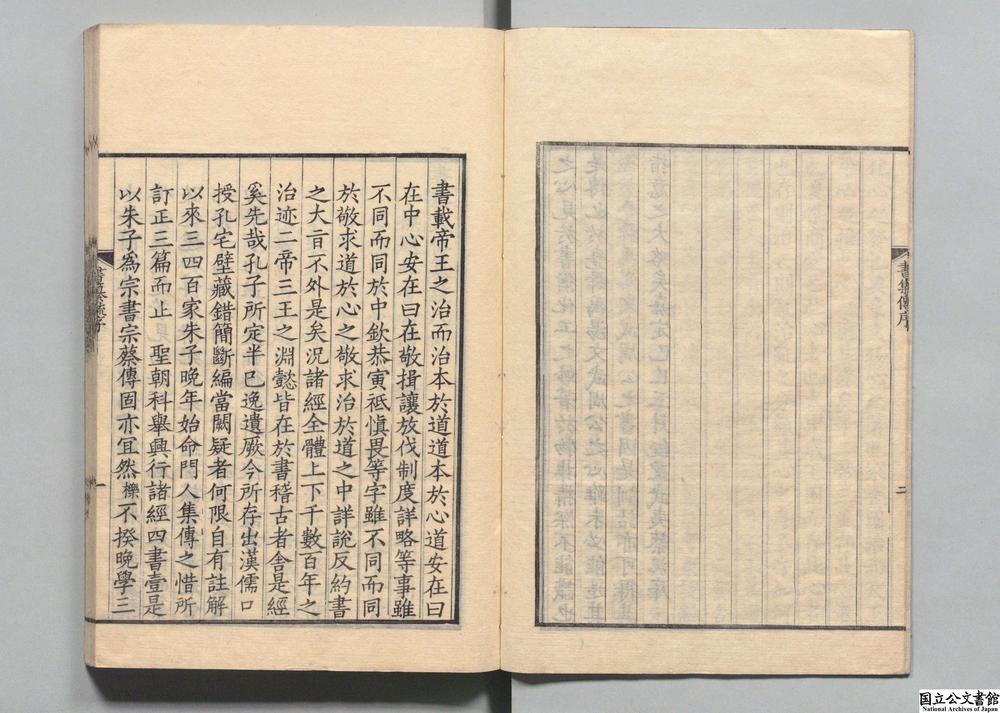 書集傳序
二
書載帝王之治而治本於道道本於心道安在曰
在中心安在曰在敬揖讓放伐制度詳略等事雖
不同而同於中欽恭寅祗愼畏等字雖不同而同
於敬求道於心之敬求治於道之中詳說反約書
之大㫖不外是矣況諸經全體上下千數百年之
治迹二帝三王之淵懿皆在於書稽古者舍是經
奚先哉孔子所定半已逸遺厥今所存出漢儒口
授孔宅壁藏錯簡斷編當闕疑者何限自有註解
以來三四百家朱子晚年始命門人集傳之惜所
訂正三篇而止 聖朝科舉興行諸經四書壹是
以朱子爲宗書宗蔡傳固亦冝然櫟不揆晚學三
一
国立公文書館
National Archives of Japan